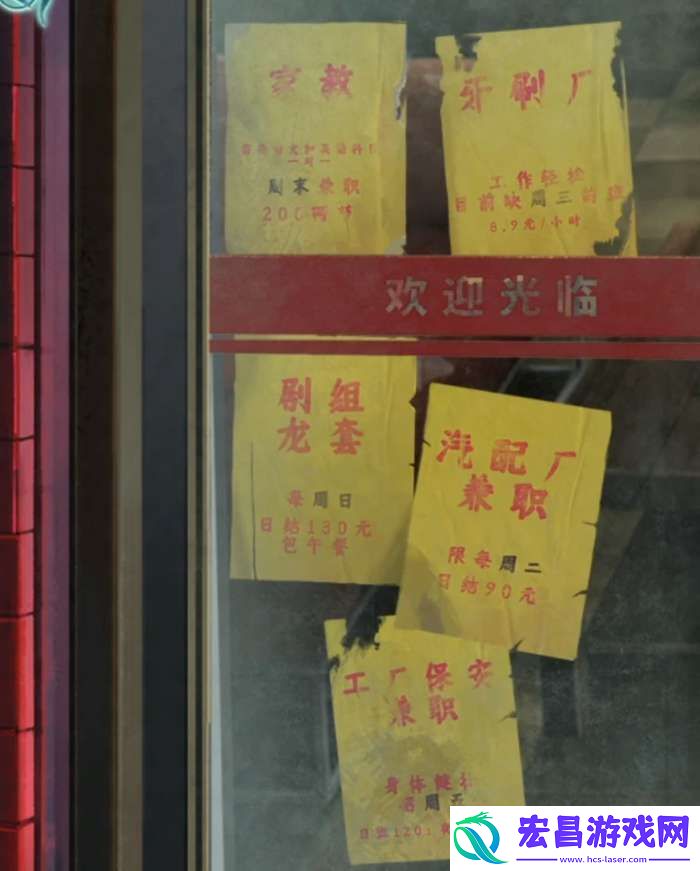 家教
一对一
周末兼职
200两节
牙刷厂
工作轻松
目前缺周三前班
8.9元/小时
欢迎光临
剧组
龙套
每周日
日结130元
包午餐
汽配厂
兼职
限每周二
日结90元
工厂保安
兼职
身体健壮
周五
宏昌游戏网
www.hcs-laser.com